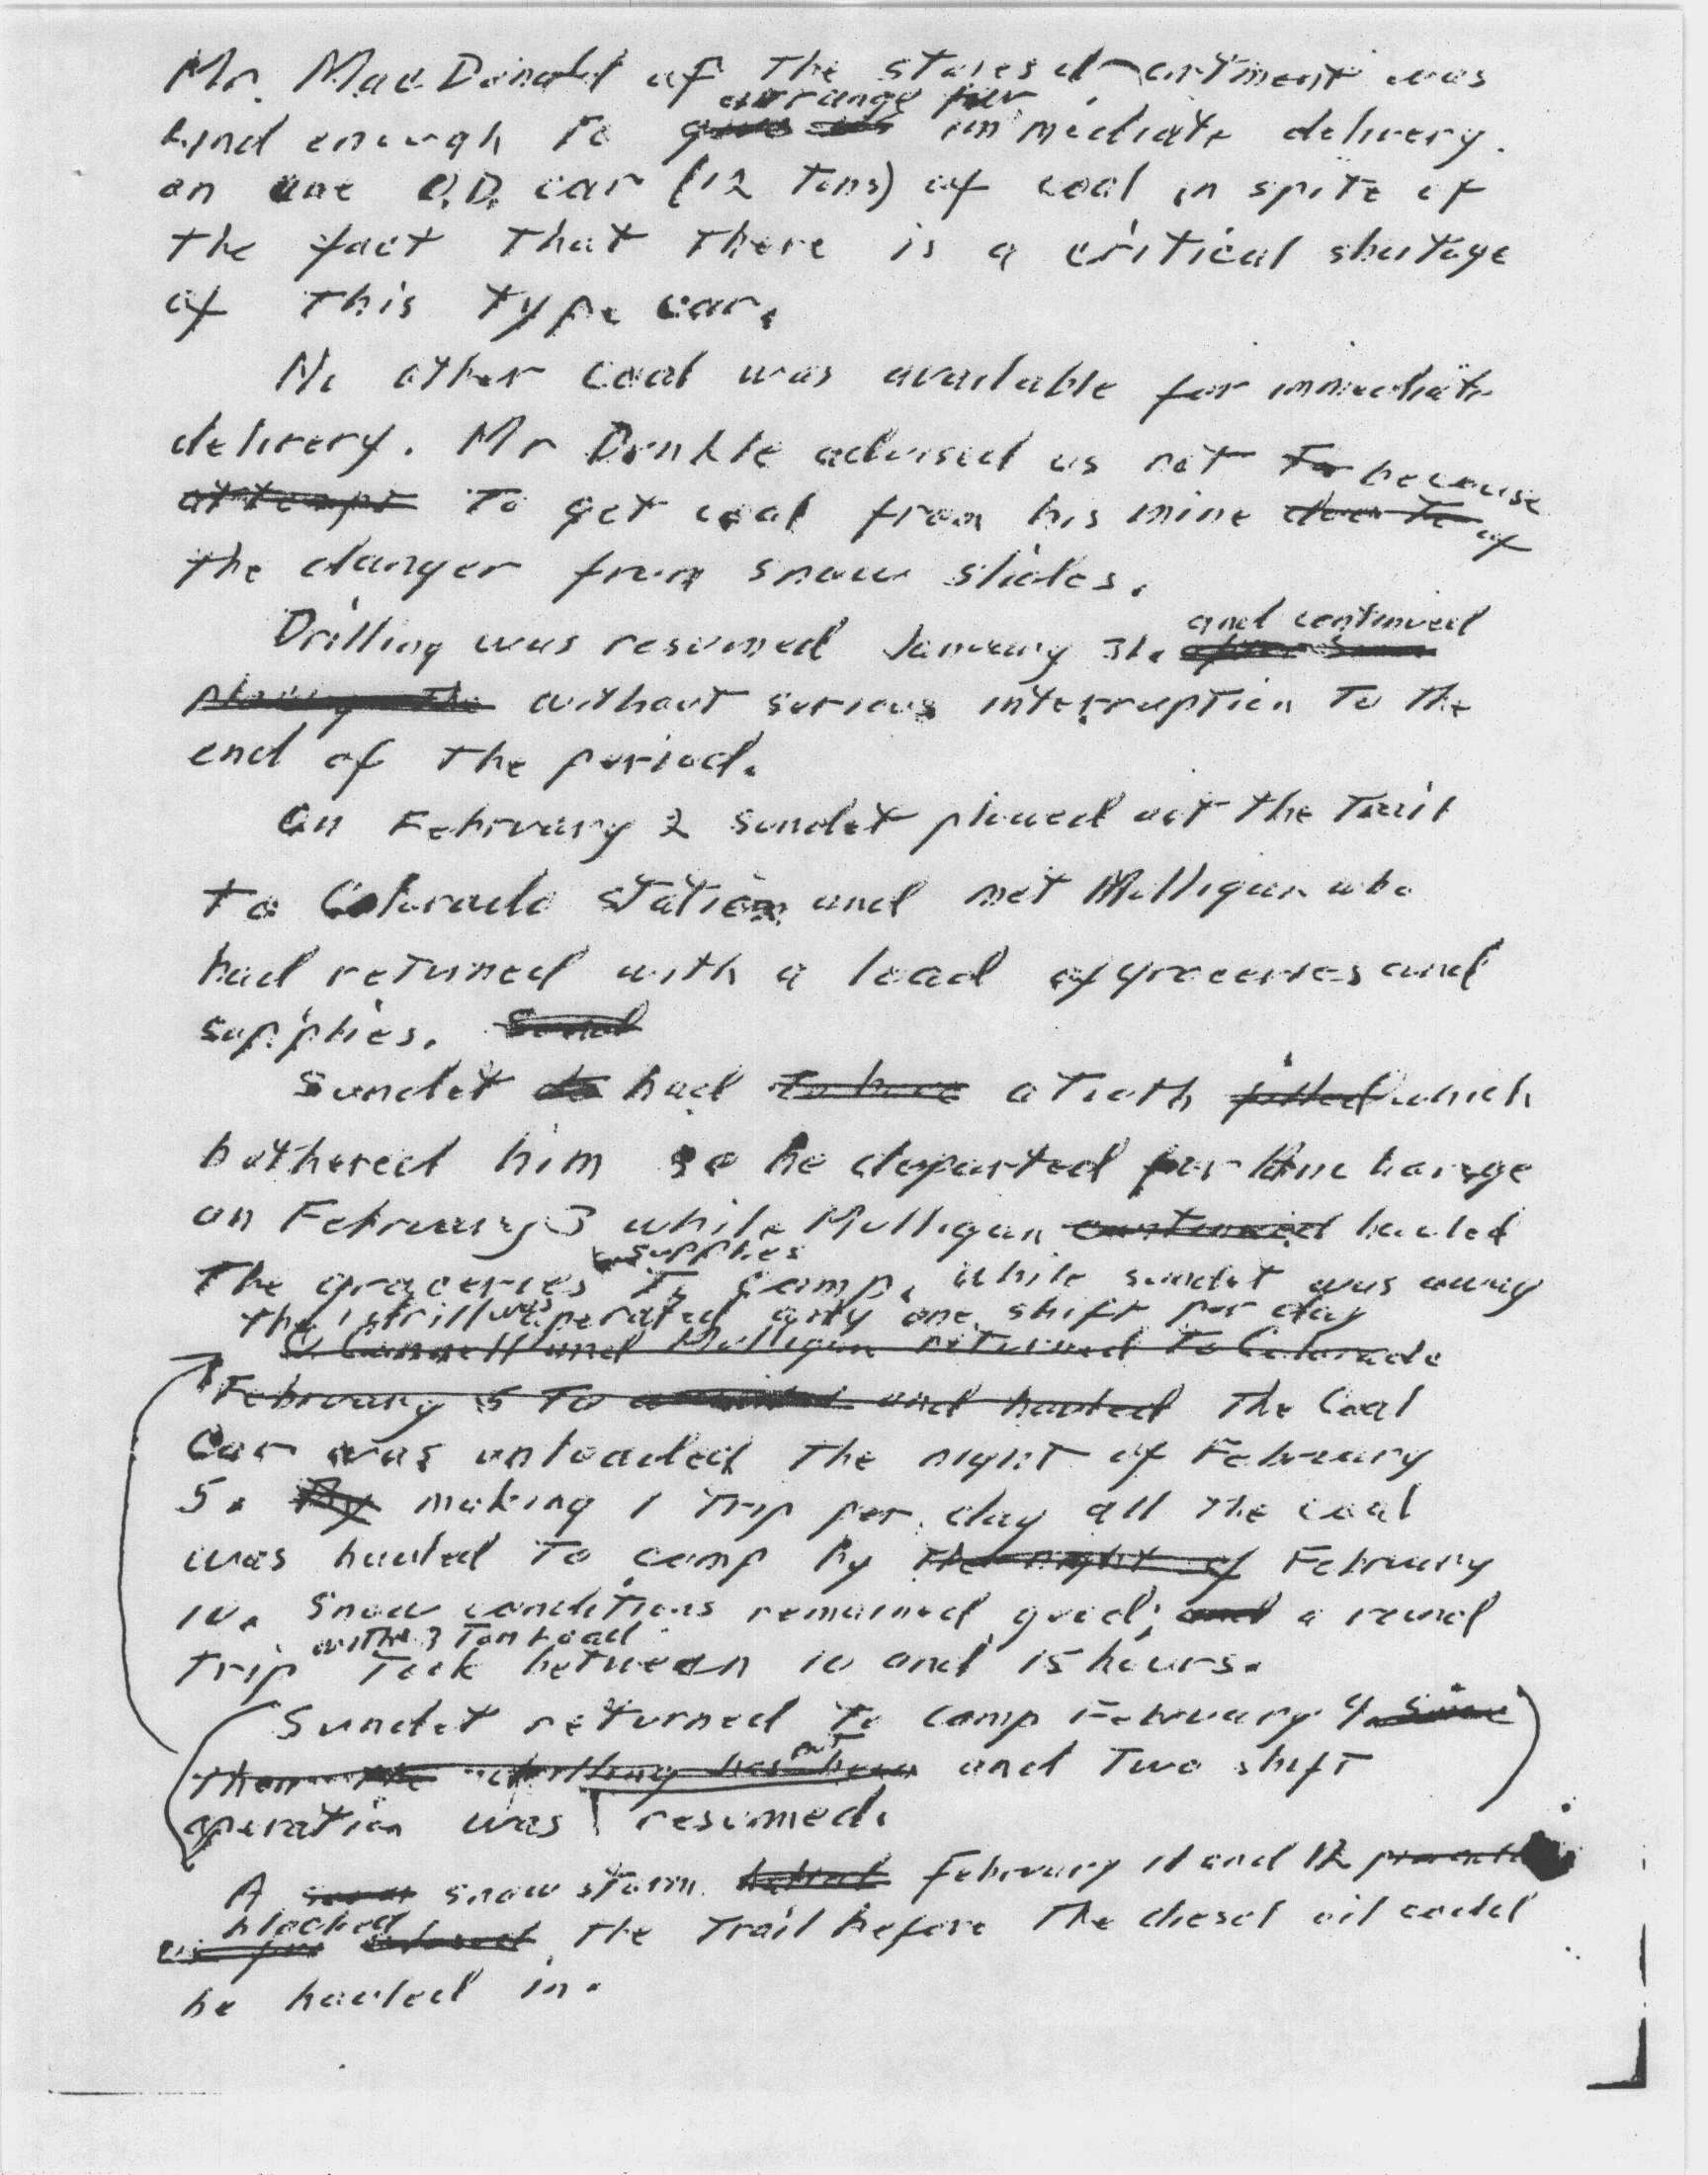 Mr. MacDonald of the stores department was
arrange for
kind enough to give us immediate delivery.
on one O.D. car (12 tons) of coal in spite of
the fact that there is a critical shortage
of this type car.
No other coal was available for immediate
delivery. Mr Dunkle advised us not to because
attempt to get coal from his mine due to of
the danger from snow slides.
and continued
Drilling was resumed January 31.
plowing the without serious interruption to the
end of the period.
On February 2 Sundet plowed out the trail
to Colorado station and met Mulligan who
had returned with a load of groceries and
supplies. Sund
Sundet had to have a tooth filled which
bothered him so he departed for Anchorage
on February 3 while Mulligan continued hauled
supplies
the groceries to camp. While sundet was away
the drill was operated only one shift per day
O'Connell and Mulligan returned to Colorado
February 5 to and hauled The Coal
Car was unloaded the night of February
5. By making 1 trip per day all the coal
was hauled to camp by the night of February
10. Snow conditions remained good; and a round
with 3 Ton Load
trip took between 10 and 15 hours.
Sundet returned to camp February 9. Since
then the drilling has been and two shift
operation was resumed.
A snow storm February 11 and 12
blocked
closed the trail before the diesel oil could
be hauled in.